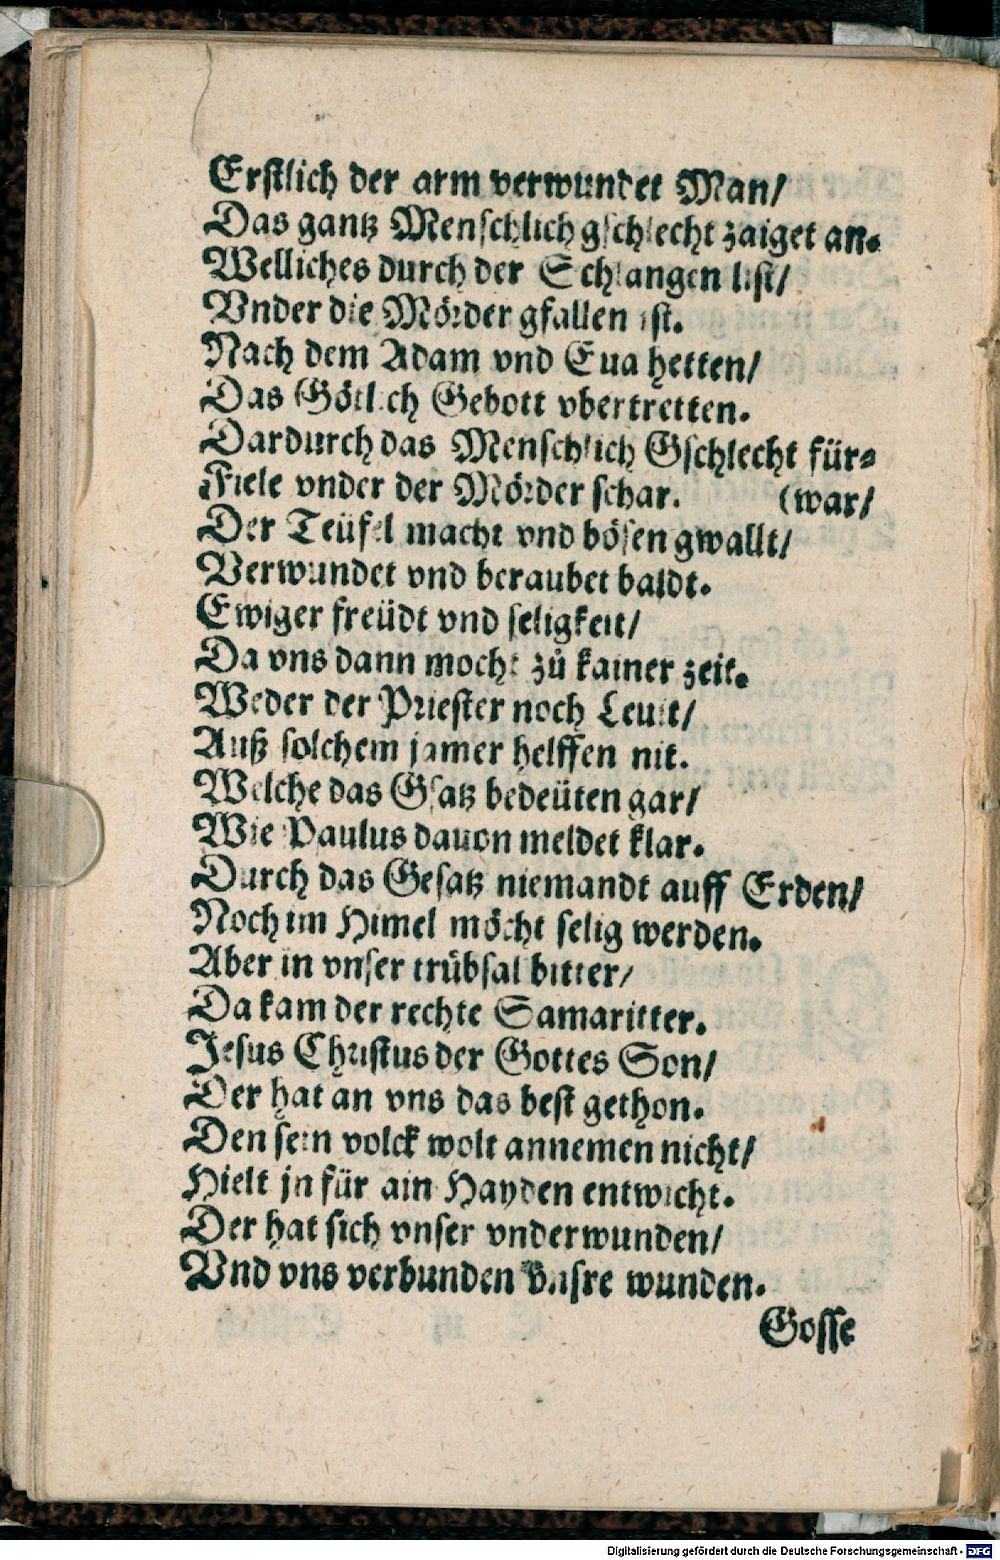 Erstlich der arm verwundet Man/
Das gantz Menschlich gschlecht zaiget an.
Welliches durch der Schlangen list/
Vnder die Mörder gfallen ist.
Nach dem Adam vnd Eua hetten/
Das Götlich Gebott vbertretten.
Dardurch das Menschlich Gschlecht für-
Fiele vnder der Mörder schar. (war/
Der Teüfel macht vnd bösen gwallt/
Verwundet vnd beraubet baldt.
Ewiger freüdt vnd seligkeit/
Da vns dann mocht zů kainer zeit.
Weder der Priester noch Leuit/
Auß solchem jamer helffen nit.
Welche das Gsatz bedeüten gar/
Wie Paulus dauon meldet klar.
Durch das Gesatz niemandt auff Erden/
Noch im Himel möcht selig werden.
Aber in vnser trübsal bitter/
Da kam der rechte Samaritter.
Jesus Christus der Gottes Son/
Der hat an vns das best gethon.
Den sein volck wolt annemen nicht/
Hielt jn für ain Hayden entwicht.
Der hat sich vnser vnderwunden/
Vnd vns verbunden vnsre wunden.
Gosse
Digitalisierung gefördert durch die Deutsche Forschungsgemeinschaft - DFG